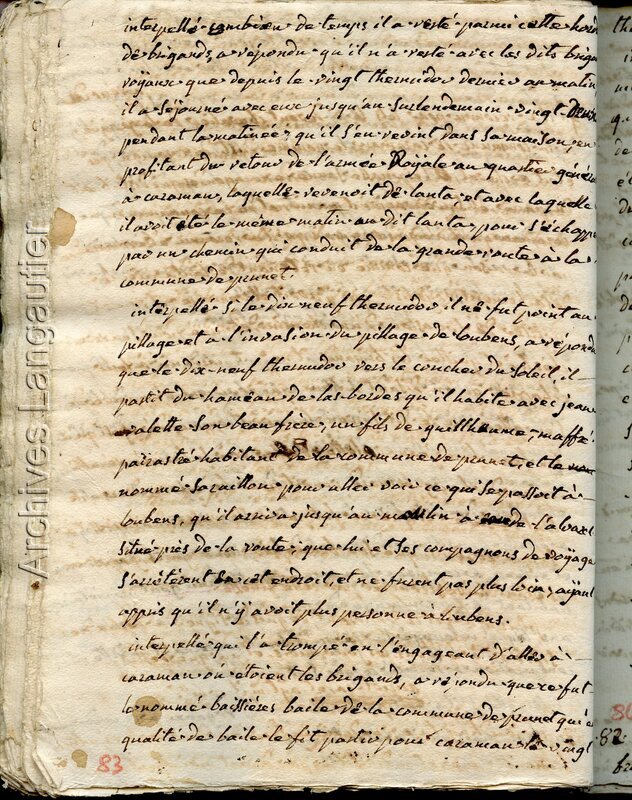 interpellé combien de temps il a resté parmi cette horde
de brigands, a répondu qu'il n'a resté avec les dits briga
royaux que depuis le vingt thermidor dernier au matin
il a séjourné avec eux jusqu'au surlendemain vingt Deux
pendant la matinée, qu'il s'en revint dans sa maison, en
profitant du retour de l'armée Royale au quartier généra
à caraman, laquelle revenoit de lanta, et avec laquelle
il avoit été le même matin au dit lanta, pour s'échappe
par un chemin qui conduit de la grande route à la
commune de prunet.
interpellé si le dix neuf thermidor il ne fut point au
pillage et à l'invasion du pillage de loubens, a répondu
que le dix-neuf thermidor vers le coucher du soleil, il
partit du haméau de las bordes qu'il habite avec jean
valette son beau frère, un fils de guillhaume, maffré
pairastré habitant de la commune de prunet, et le
nommé saraillon pour aller voir ce qui se passoit à
loubens, qu'il arriva jusqu'au moulin à de l'abast
situé près de la route, que lui et ses compagnons de voyage
s'arrêtèrent en cet endroit, et ne furent pas plus loin, ayant
appris qu'il n'y avoit plus personne à loubens.
interpellé qui l'a trompé en l'engageant d'aller à
caraman ou étoient les brigands, a répondu que ce fut
le nommé baissières baile de la commune de prunet qui
qualité de baile le fit partir pour caraman le vingt
83
Archives Langautier